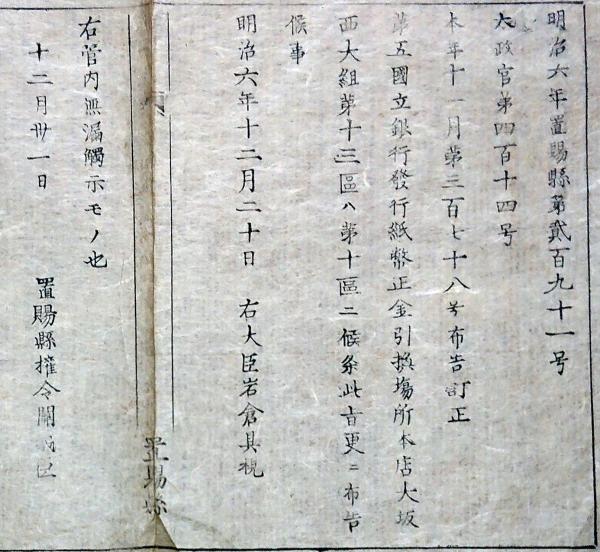 明治六年置賜縣第貳百九十一号
太政官第四百十四号
本年十一月第三百七十八号布告訂正
第五國立銀行發行紙幣正金引換場所本店大坂
西大組第十三區ハ第十區ニ候条此旨更ニ布告
候事
明治六年十二月二十日 右大臣岩倉具視
置賜縣
右管内無漏觸示モノ也
十二月卅一日 置賜縣権令関